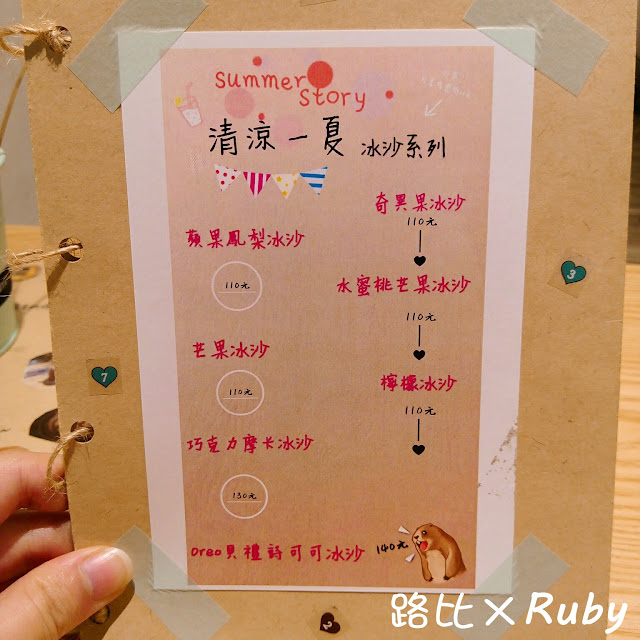 summer
story
清涼一夏 冰沙系列
奇異果冰沙
110元
蘋果鳳梨冰沙
110元
水蜜桃芒果冰沙
110元
芒果冰沙
110元
檸檬冰沙
110元
巧克力摩卡冰沙
130元
Oreo貝禮詩可可冰沙 140元
3
7
2
路比×Ruby